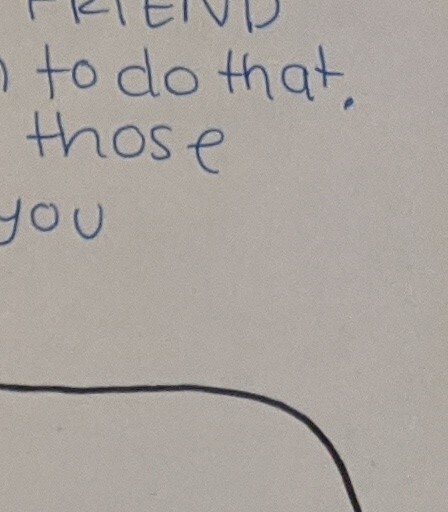 FRIEND
to do that.
those
you